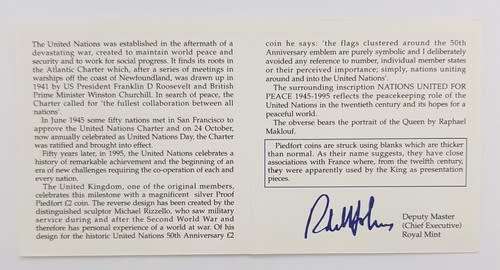 The United Nations was established in the aftermath of a
devastating war, created to maintain world peace and
security and to work for social progress. It finds its roots in
the Atlantic Charter which, after a series of meetings in
warships off the coast of Newfoundland, was drawn up in
1941 by US President Franklin D Roosevelt and British
Prime Minister Winston Churchill. In search of peace, the
Charter called for 'the fullest collaboration between all
nations'.
In June 1945 some fifty nations met in San Francisco to
approve the United Nations Charter and on 24 October,
now annually celebrated as United Nations Day, the Charter
was ratified and brought into effect.
Fifty years later, in 1995, the United Nations celebrates a
history of remarkable achievement and the beginning of an
era of new challenges requiring the co-operation of each and
every nation.
The United Kingdom, one of the original members,
celebrates this milestone with a magnificent silver Proof
Piedfort £2 coin. The reverse design has been created by the
distinguished sculptor Michael Rizzello, who saw military
service during and after the Second World War and
therefore has personal experience of a world at war. Of his
design for the historic United Nations 50th Anniversary £2
coin he says: 'the flags clustered around the 50th
Anniversary emblem are purely symbolic and I deliberately
avoided any reference to number, individual member states
or their perceived importance; simply, nations uniting
around and into the United Nations'.
The surrounding inscription NATIONS UNITED FOR
PEACE 1945-1995 reflects the peacekeeping role of the
United Nations in the twentieth century and its hopes for a
peaceful world.
The obverse bears the portrait of the Queen by Raphael
Maklouf.
Piedfort coins are struck using blanks which are thicker
than normal. As their name suggests, they have close
associations with France where, from the twelfth century,
they were apparently used by the King as presentation
pieces.
Deputy Master
(Chief Executive)
Royal Mint